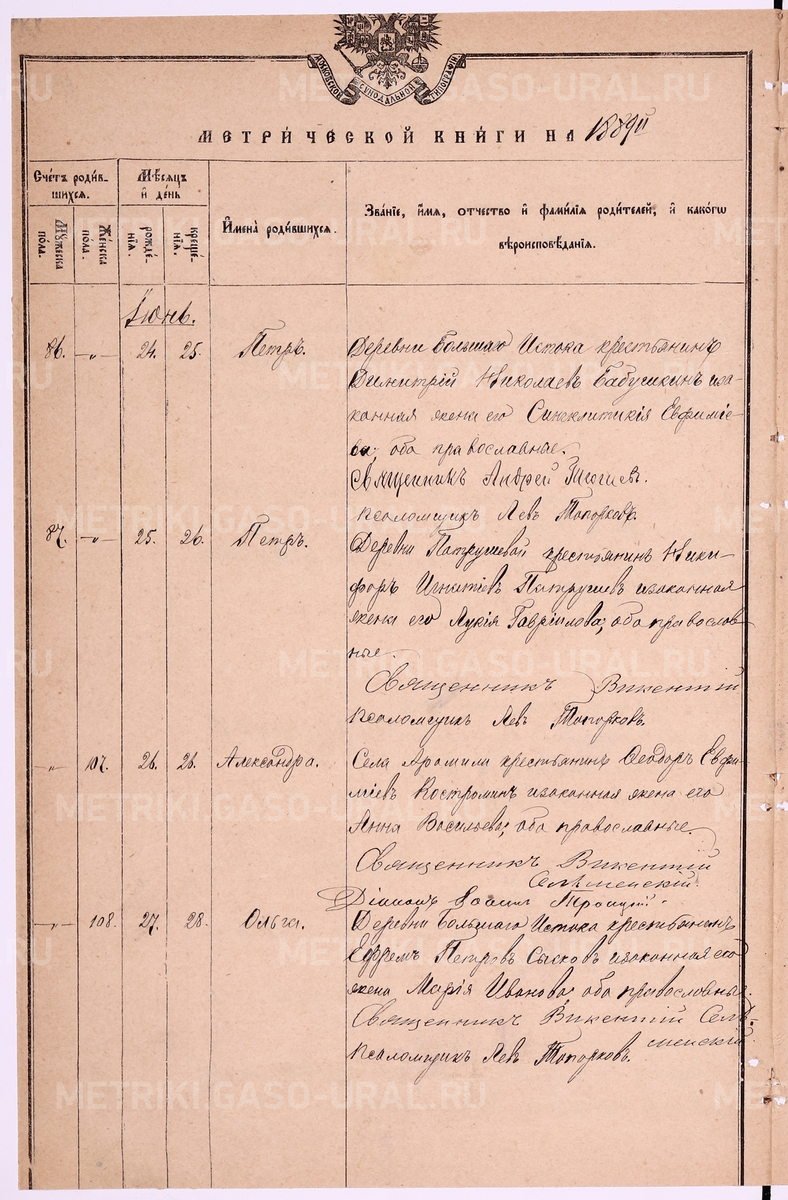 МОСКОВСКОЙ СУНОДАЛЬНОЙ ТИПОГРАФІИ
МЕТРИ́ЧЕСКОЙ КНИ́ГИ НА 1889й
Счетъ роди́вшихся.
Мѣсяцъ и́ де́нь
И҆мена̀ роди́вшихся.
Зва́нїе, и҆́мя, ѻ҆́тчество и҆ фами́лїя роди́телей, и҆ како́гѡ
вѣроисповѣ́данїя.
Мꙋ́жеска по́ла.
Же́нска по́ла.
рожде́нїѧ.
креще́нїѧ.
Іюнь.
86. -„- 24. 25. Петръ. Деревни Большаго Истока крестьянинъ
Димитрій Николаевъ Бабушкинъ и за-
конная жена его Синклитикія Евфиміе-
ва; оба православные.
Священникъ Андрей
Псаломщикъ Левъ Топорковъ.
87. -„- 25. 26. Петръ. Деревни Патрушевой крестьянинъ Ники-
форъ Игнатіевъ Патрушевъ и законная
жена его Лукія Гавріилова; оба православ-
ные.
Священникъ Викентій
Псаломщикъ Левъ Топорковъ.
-„- 107. 26. 26. Александра. Села Арамили крестьянинъ Ѳеодоръ Евфи-
міевъ Костроминъ и законная жена его
Анна Васильева; оба православные.
Священникъ Викентій
Селѣменскій.
Діаконъ Троицкій.
-„- 108. 27. 28. Ольга. Деревни Большаго Истока крестьянинъ
Ефремъ Петровъ Сысковъ и законная его
жена Марія Иванова; оба православные.
Священникъ Викентій Селѣ-
менскій
Псаломщикъ Левъ Топорковъ.
METRIKI.GASO-URAL.RU